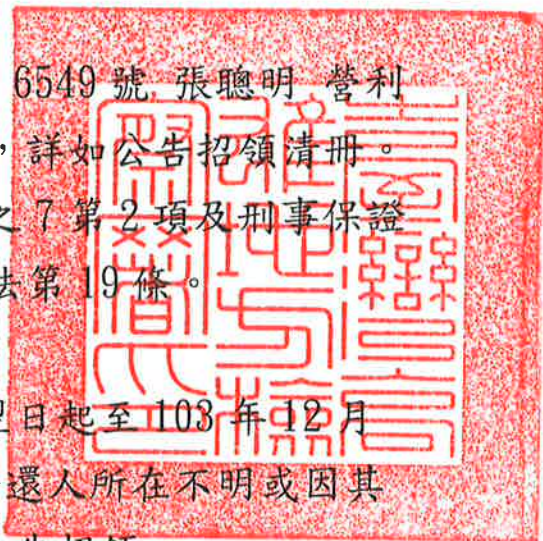 6549 號 張聰明 營利
，詳如公告招領清冊。
之 7 第 2 項及刑事保證
法第 19 條。
翌日起至 103 年 12 月
還人所在不明或因其
臺灣高
雄地方檢
察署印